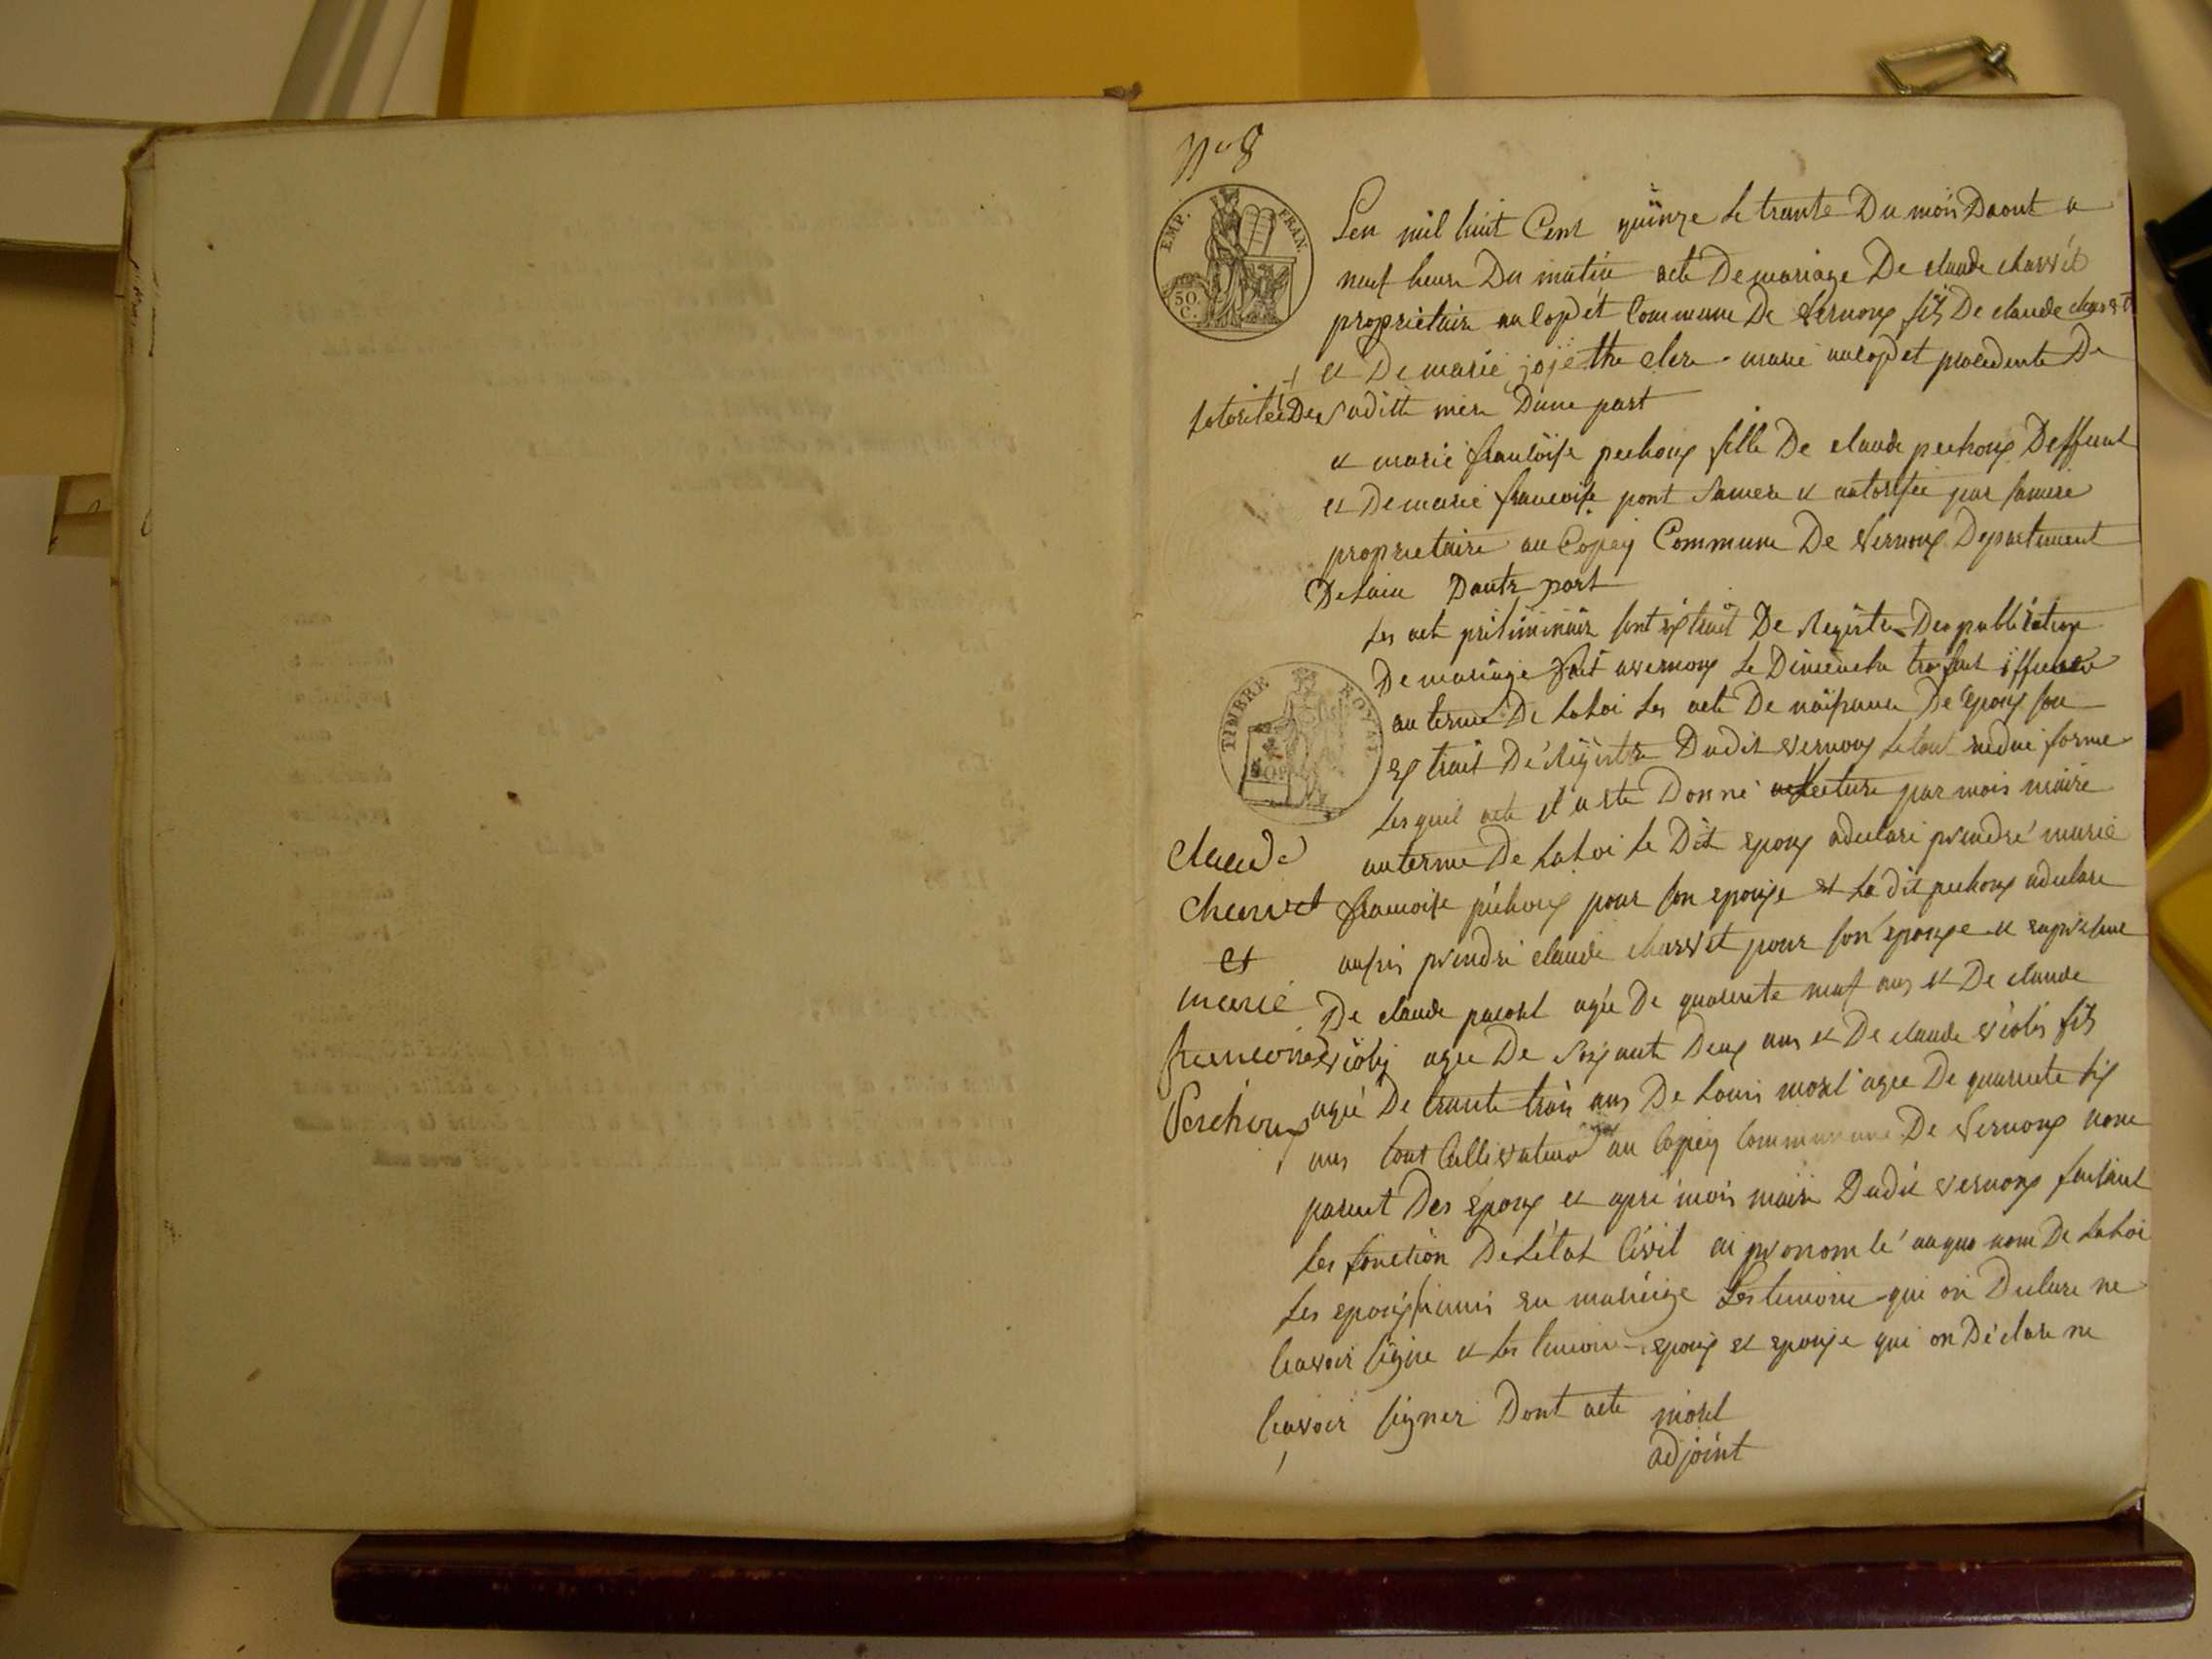 No 8
EMP. FRAN.
50. C.
Len mil huit Cent quinze le trente Du mois Daout a
neuf heure Du matin acte De mariage De claude charvet
proprietaire au Copet Commune De Vernoux fils De claude charvet
et De marie clere marie au copet procedente De
Lotoritée De sa ditte mere Dune part
et marie francoise pechoux fille De claude pechoux Deffunt
et De marie francoise pont sa mere et autorisée par sa mere
proprietaire au Copey Commune De Vernoux Departement
De Lain Dautr part
Les acte priliminair sont extrait De Registre Des publication
De mariage fait a vernoux le Dimenche
au terme De la Loi Les acte De naisance De Epoux son
extrait De Registre Dudit vernoux le tout forme
Lesquel acte il a ete Donné lecture par mois maire
TIMBRE ROYAL
au terme De la Loi le Dit epoux a declare prendre marie
francoise pechoux pour son epouse et la dit pechoux a declare
aussis prendre claude charvet pour son epouse et en presance
De claude pacoret agée De quarente neuf ans et De claude
violy agee De soixante Deux ans et De claude violy fils
agé De trente trois ans De Louis morel agee De quarente six
ans tout Cultivateur au Copey Commune De Vernoux nom
parent Des Epoux et apre mois maire Dudit vernoux faisant
les fonction De Létat Civil ai prononcé au nom De la Loi
Les epoux sunis en mariage Les temoin qui on Declare ne
savoir signe et les temoin epoux et epouse qui on Déclare ne
savoir signer Dont acte morel
adjoint
claude
charvet
et
marie
francoise
Perchoux